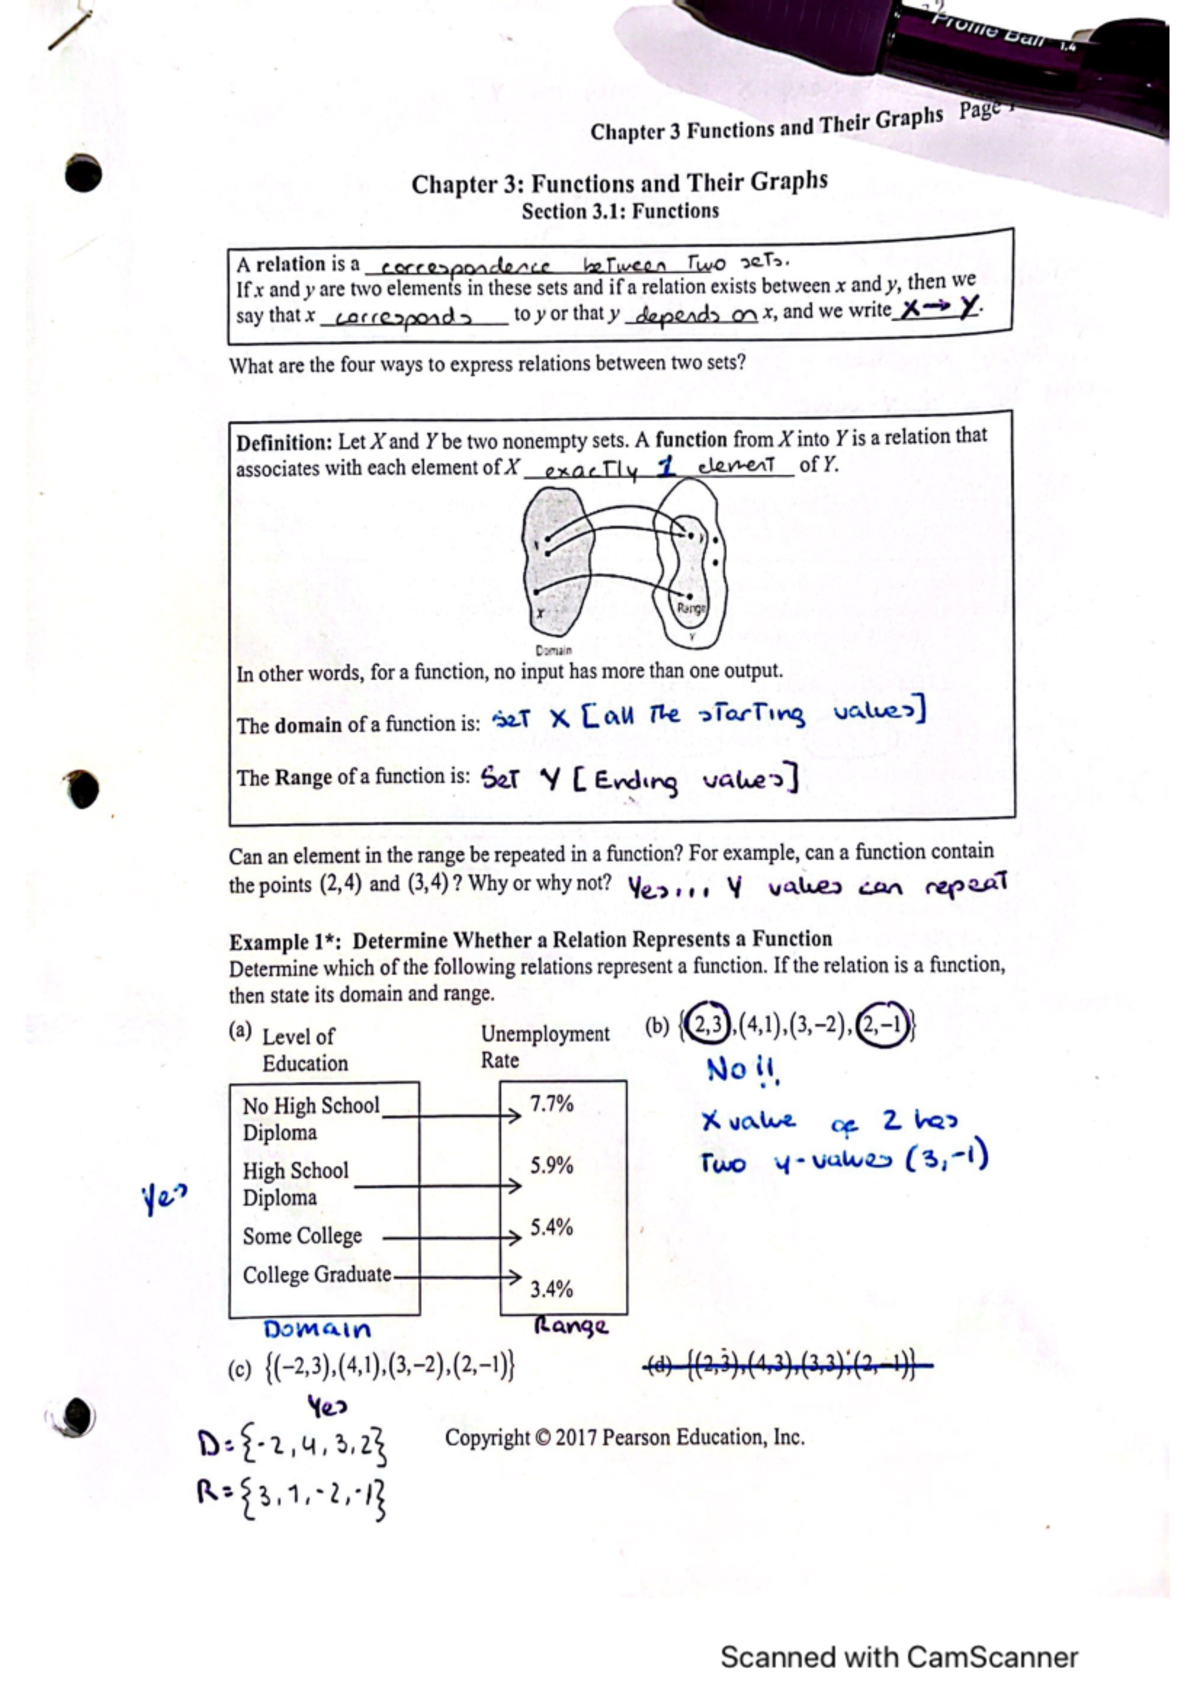 Profile Ball 1.4
Chapter 3 Functions and Their Graphs Page
Chapter 3: Functions and Their Graphs
Section 3.1: Functions
A relation is a correspondence between Two sets.
If x and y are two elements in these sets and if a relation exists between x and y, then we
say that x corresponds to y or that y depends on x, and we write X→Y.
What are the four ways to express relations between two sets?
Definition: Let X and Y be two nonempty sets. A function from X into Y is a relation that
associates with each element of X exactly 1 element of Y.
x
Range
Y
Domain
In other words, for a function, no input has more than one output.
The domain of a function is: Set X [all The starTing values]
The Range of a function is: Set Y [Ending values]
Can an element in the range be repeated in a function? For example, can a function contain
the points (2,4) and (3,4)? Why or why not? Yes... Y values can repeat
Example 1*: Determine Whether a Relation Represents a Function
Determine which of the following relations represent a function. If the relation is a function,
then state its domain and range.
(a) Level of Education
Unemployment Rate
(b) {(2,3),(4,1),(3,−2),(2,−1)}
No!!
X value of 2 has
Two y-values (3,-1)
No High School Diploma 7.7%
High School Diploma 5.9%
Yes
Some College 5.4%
College Graduate 3.4%
Domain Range
(c) {(−2,3),(4,1),(3,−2),(2,−1)}
(d) {(2,3),(4,3),(3,3),(2,−1)}
Yes
D={-2,4,3,2}
R={3,1,-2,-1}
Copyright © 2017 Pearson Education, Inc.
Scanned with CamScanner